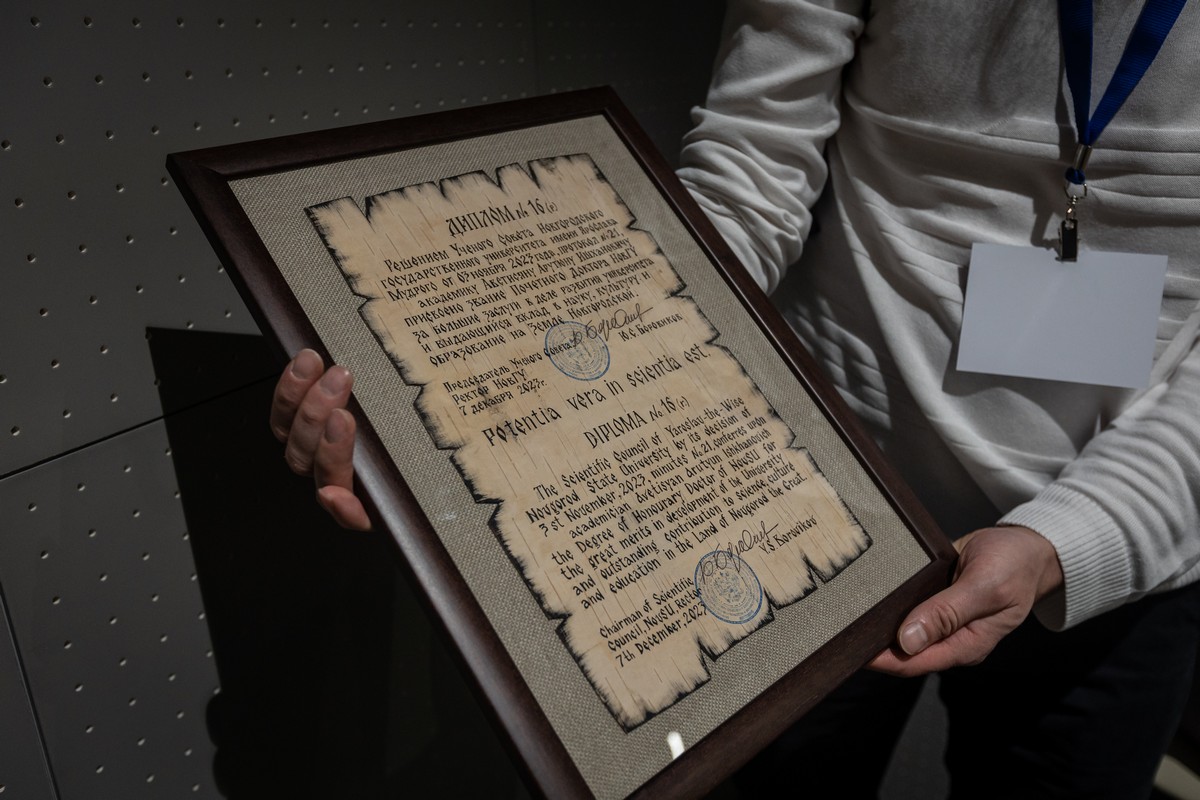 ДИПЛОМ № 16(г)
Решением Ученого Совета Новгородского
государственного университета имени Ярослава
Мудрого от 03 ноября 2023 года, протокол № 21
академику Аветисяну Арутюну Ишхановичу
присвоено звание Почетного Доктора НовГУ
за большие заслуги в деле развития университета
и выдающийся вклад в науку, культуру и
образование на Земле Новгородской.
Председатель Ученого Совета
Ректор НовГУ Ю.С. Боровиков
7 декабря 2023г.
Potentia vera in scientia est.
DIPLOMA № 16(г)
The Scientific Council of Yaroslav-the-Wise
Novgorod State University by its decision of
3 st November, 2023, minutes № 21 conferres upon
academician Avetisyan Arutyun Ishkhanovich
the Degree of Honourary Doctor of NovSU for
the great merits in development of the University
and outstanding contribution to science, culture
and education in the Land of Novgorod the Great.
Chairman of Scientific
Council, NovSU, Rector Y.S Borovikov
7th December 2023